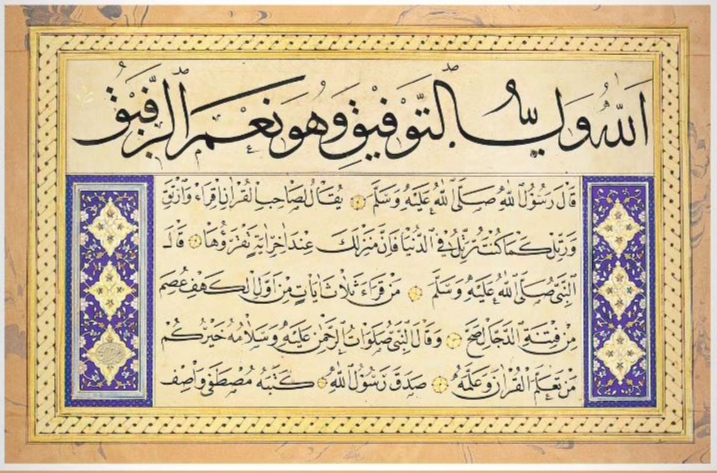 اَللّٰهُ وَلِيُّ التَّوْفِيقِ وَهُوَ نِعْمَ الرَّفِيقُ
قَالَ رَسُولُ اللهِ صَلَّى اللهُ عَلَيْهِ وَسَلَّمَ يُقَالُ لِصَاحِبِ الْقُرْاٰنِ اِقْرَاْ وَارْتَقِ
وَرَتِّلْ كَمَا كُنْتَ تُرَتِّلُ فِى الدُّنْيَا فَاِنَّ مَنْزِلَكَ عِنْدَ اٰخِرِ اٰيَةٍ تَقْرَؤُهَا قَالَ
النَّبِىُّ صَلَّى اللهُ عَلَيْهِ وَسَلَّمَ مَنْ قَرَاَ ثَلَاثَ اٰيَاتٍ مِنْ اَوَّلِ الْكَهْفِ عُصِمَ
مِنْ فِتْنَةِ الدَّجَّالِ صح وَقَالَ النَّبِىُّ صَلَوَاتُ الرَّحْمٰنِ عَلَيْهِ وَسَلَامُهُ خَيْرُكُمْ
مَنْ تَعَلَّمَ الْقُرْاٰنَ وَعَلَّمَهُ صَدَقَ رَسُولُ اللهِ كَتَبَهُ مُصْطَفٰى وَاصِف